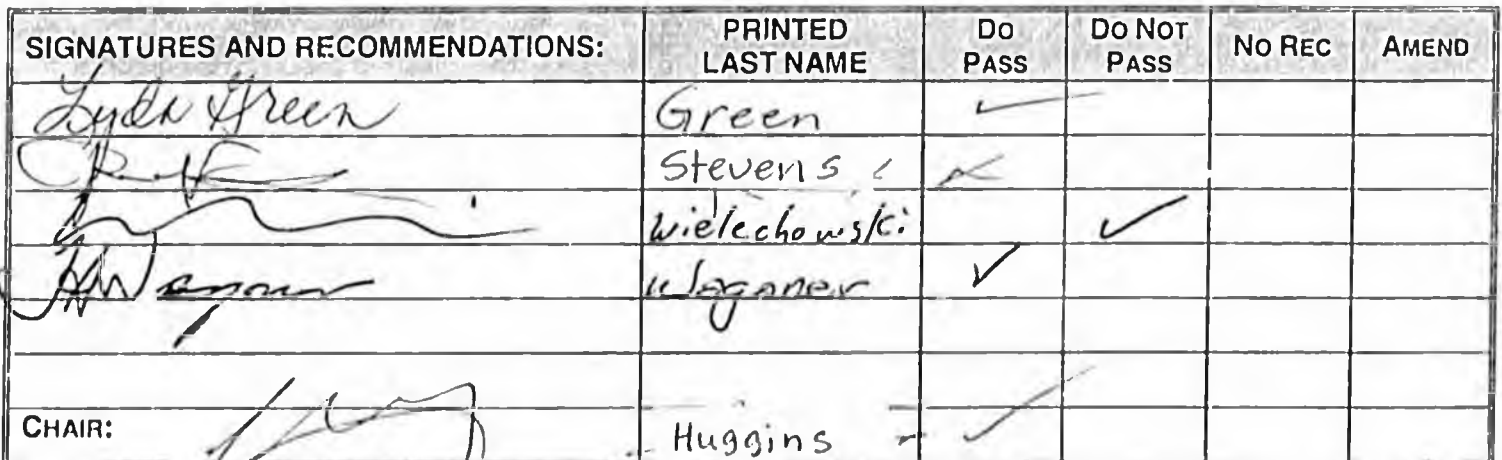 SIGNATURES AND RECOMMENDATIONS: PRINTED LAST NAME DO PASS DO NOT PASS NO REC AMEND
Lyda Green Green ✓
Stevens
Wielechowski ✓
Waganer ✓
CHAIR: Huggins ✓